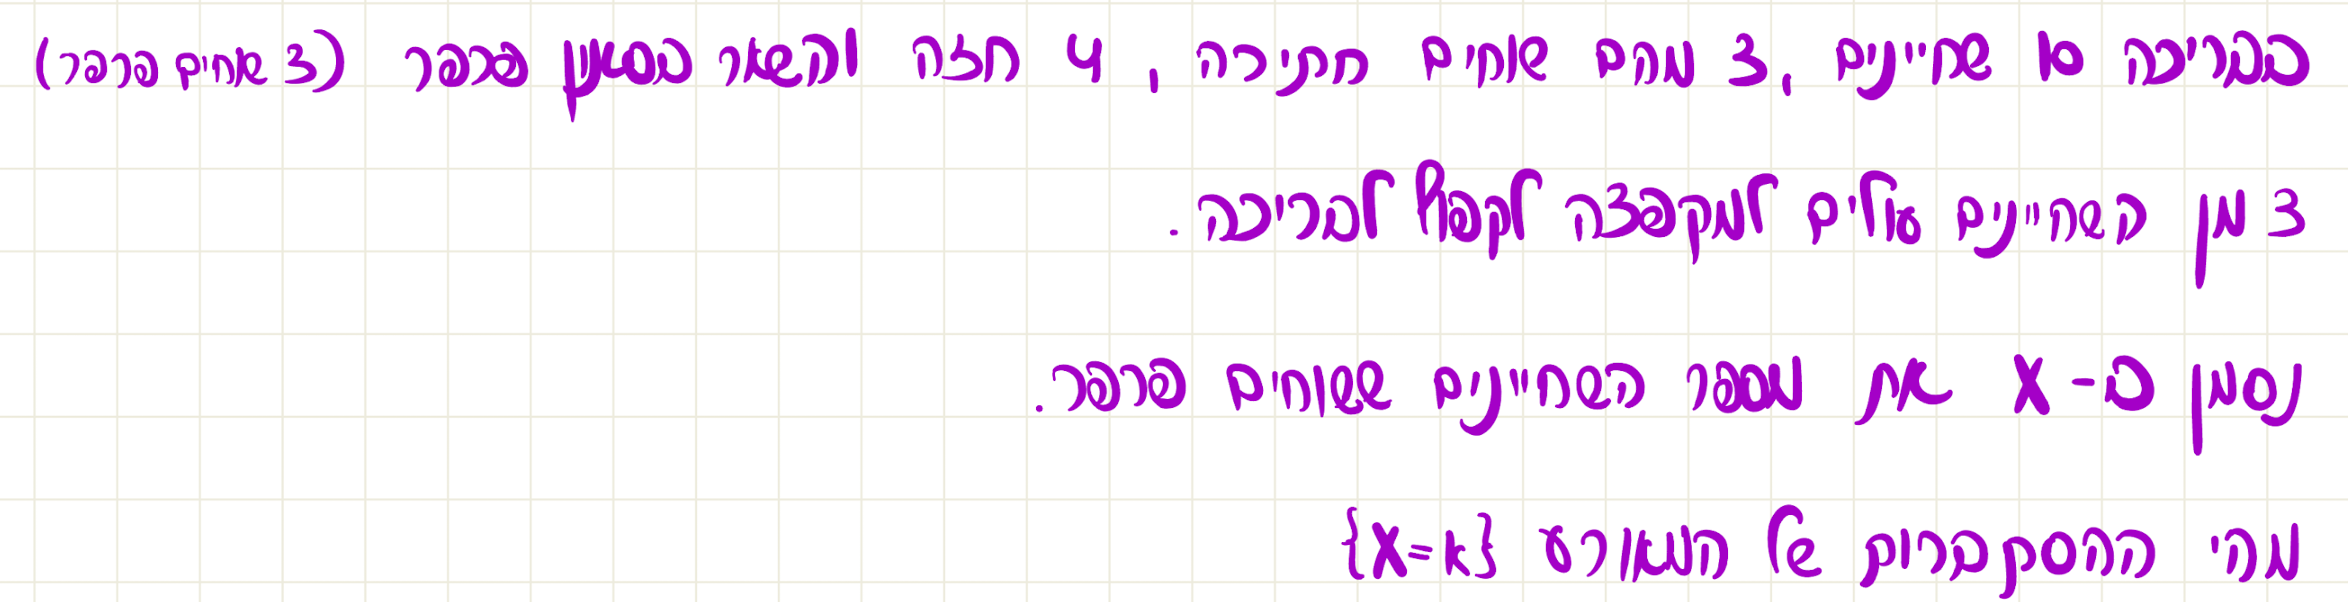 בבריכה 10 שחיינים, 3 מהם שוחים חתירה, 4 חזה והשאר בסגנון פרפר (3 שוחים פרפר)
3 מן השחיינים עולים למקפצה לקפוץ לבריכה.
נסמן ב-X את מספר השחיינים ששוחים פרפר.
מהי ההסתברות של המאורע {X=k}